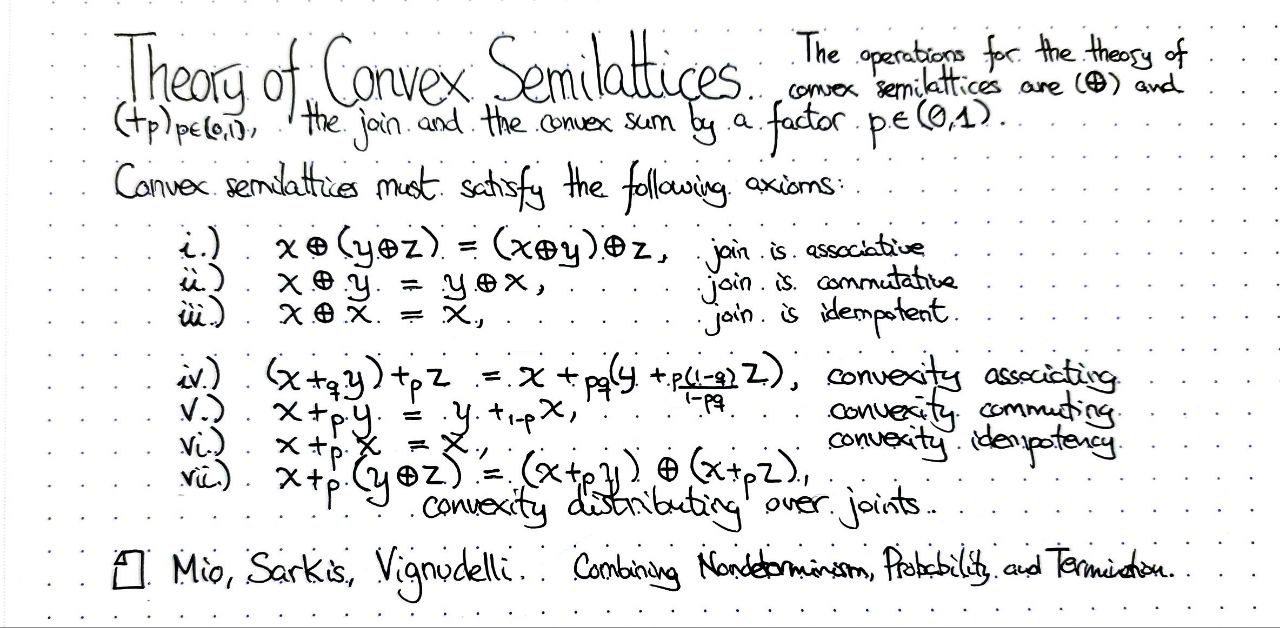 Theory of Convex Semilattices. The operations for the theory of
convex semilattices are (⊕) and
(+p)p∈(0,1), the join and the convex sum by a factor p∈(0,1).
Convex semilattices must satisfy the following axioms:
i.) x ⊕ (y ⊕ z) = (x ⊕ y) ⊕ z, join is associative
ii.) x ⊕ y = y ⊕ x, join is commutative
iii.) x ⊕ x = x, join is idempotent.
iv.) (x +_q y) +_p z = x +_pq (y +_{p(1-q)/(1-pq)} z), convexity associating
v.) x +_p y = y +_{1-p} x, convexity commuting
vi.) x +_p x = x, convexity idempotency.
vii.) x +_p (y ⊕ z) = (x +_p y) ⊕ (x +_p z),
convexity distributing over joints.
Mio, Sarkis, Vignudelli. Combining Nondeterminism, Probability, and Termination.